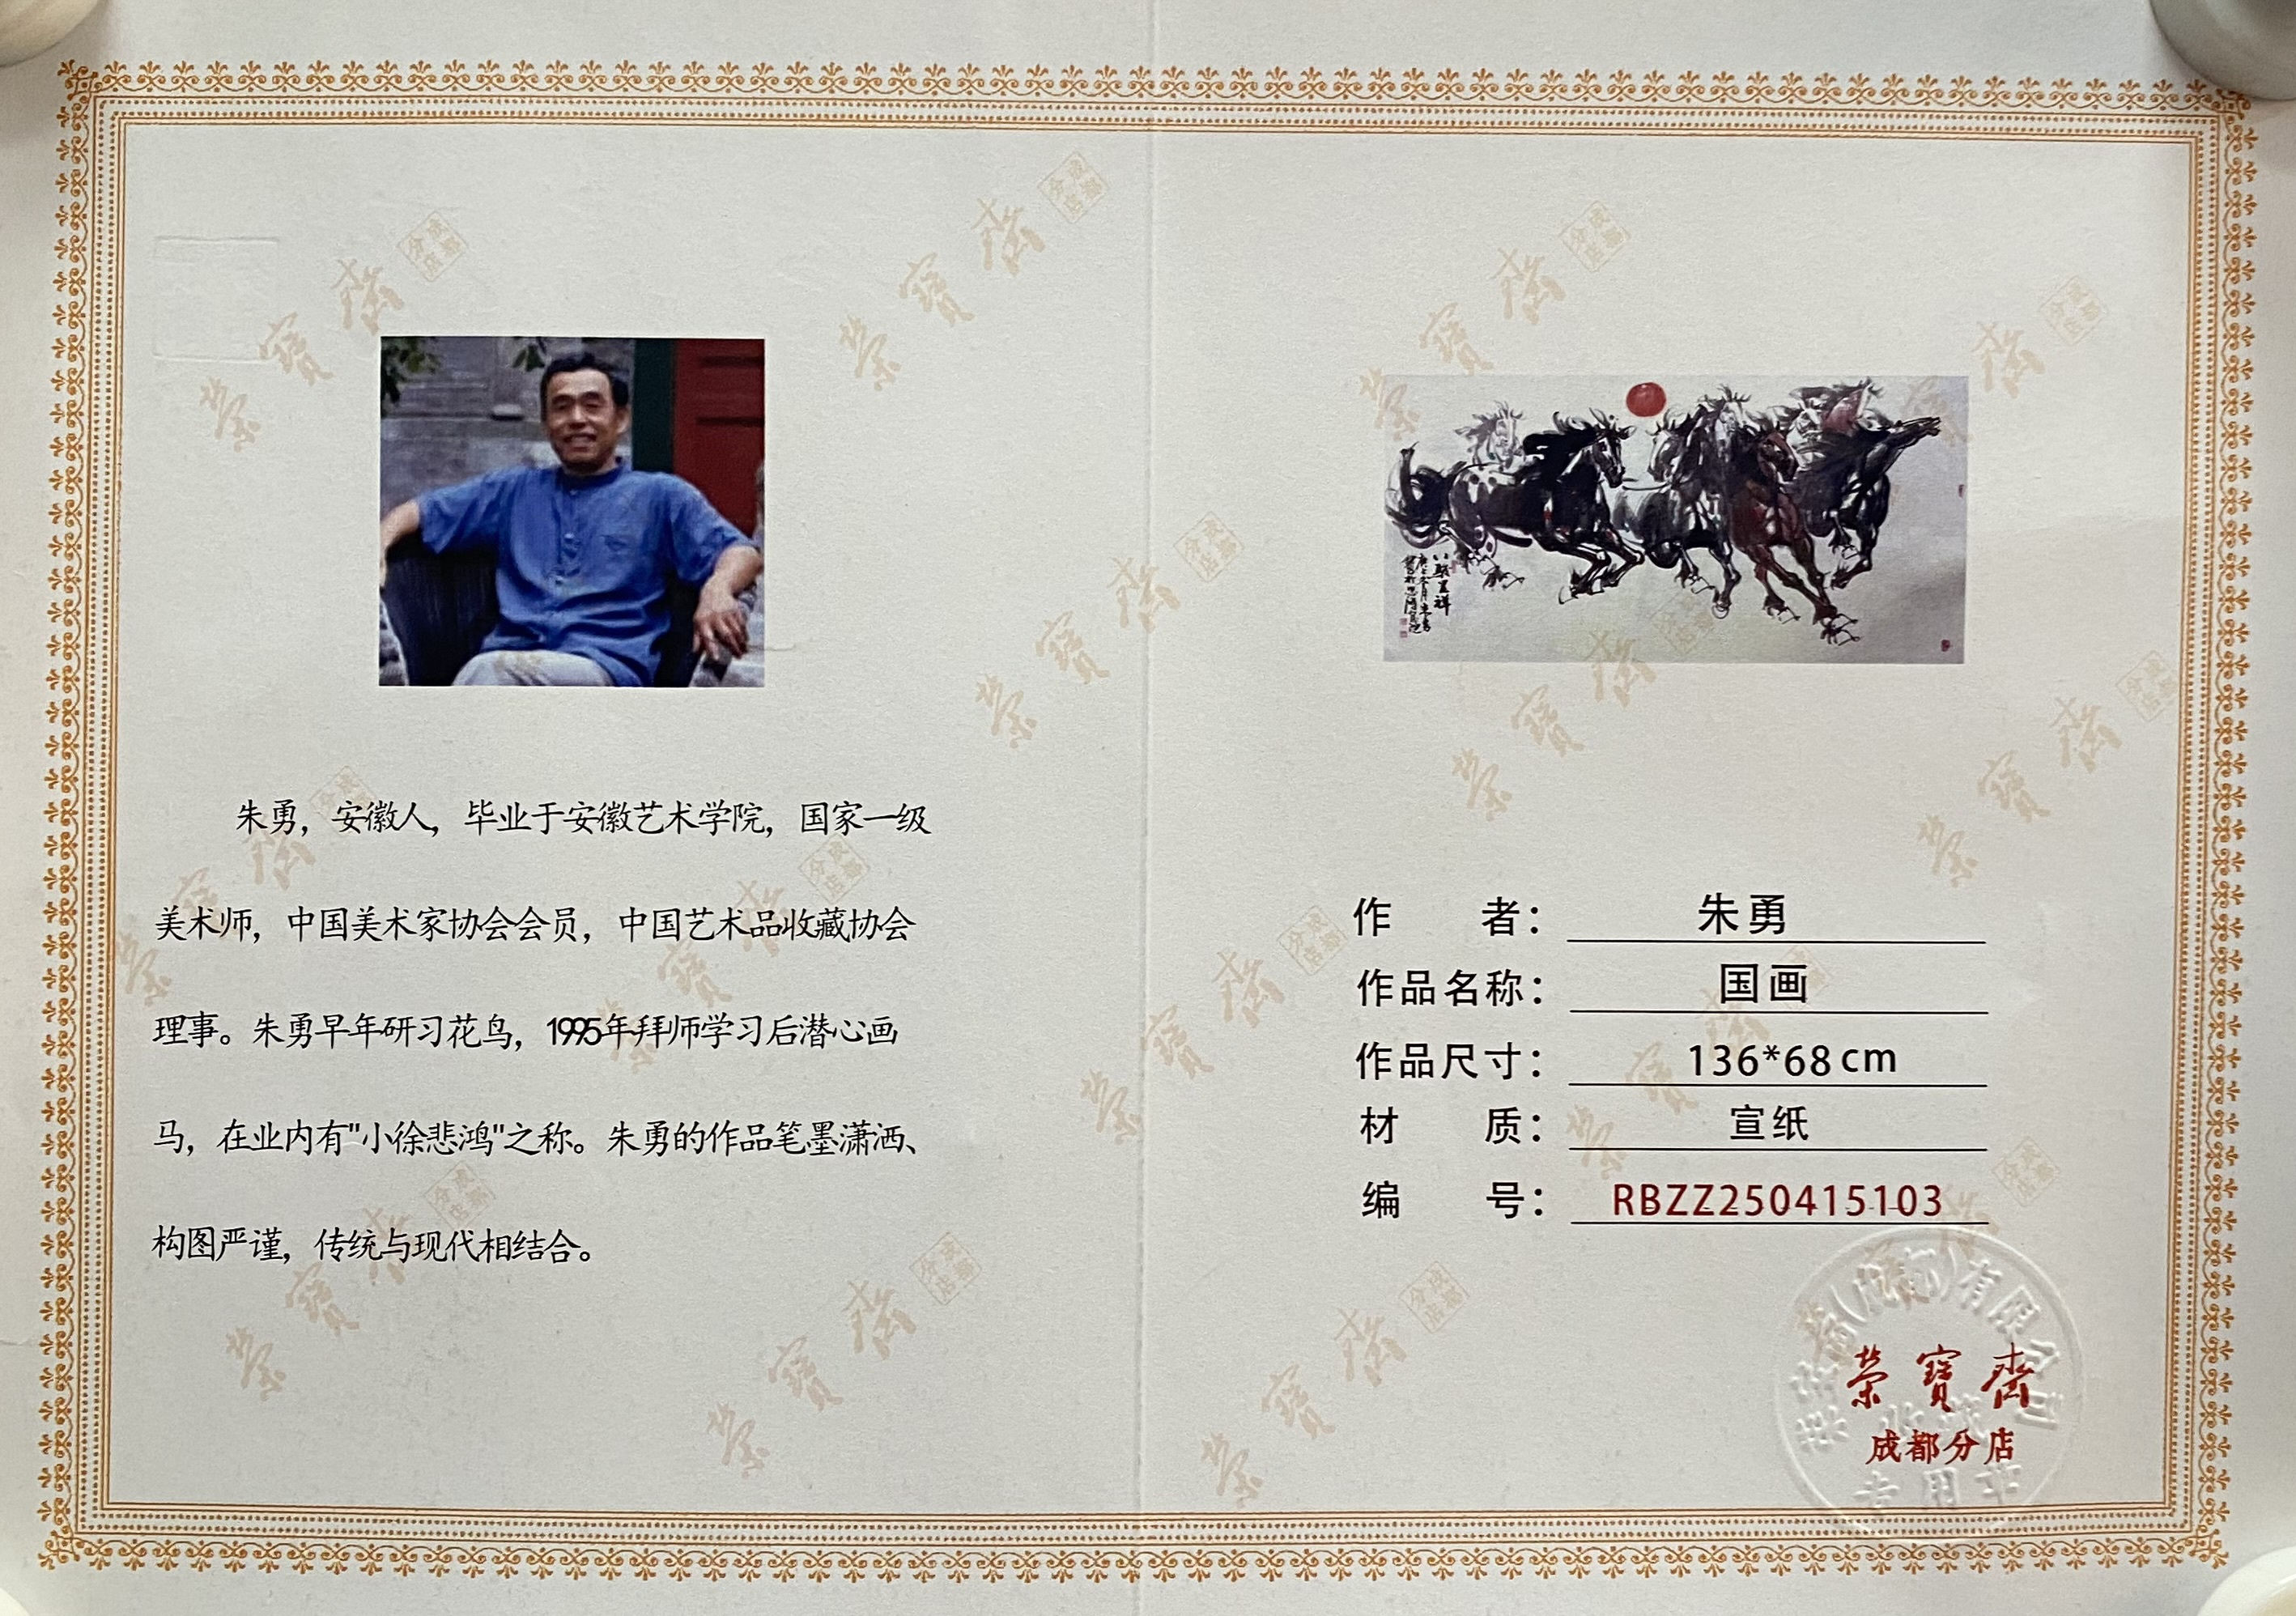 朱勇，安徽人，毕业于安徽艺术学院，国家一级
美术师，中国美术家协会会员，中国艺术品收藏协会
理事。朱勇早年研习花鸟，1995年拜师学习后潜心画
马，在业内有"小徐悲鸿"之称。朱勇的作品笔墨潇洒、
构图严谨，传统与现代相结合。
作 者： 朱勇
作品名称： 国画
作品尺寸： 136*68cm
材 质： 宣纸
编 号： RBZZ250415103
榮寶齋
成都分店